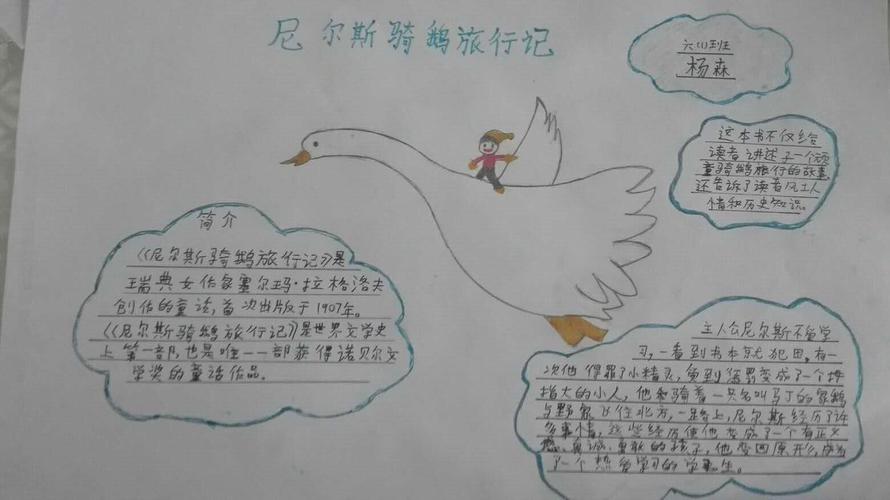 尼尔斯骑鹅旅行记
六(1)班
杨森
这本书不仅给
读者讲述了一个顽
童骑鹅旅行的故事,
还告诉了读者风土人
情和历史知识。
简介
《尼尔斯骑鹅旅行记》是
瑞典女作家塞尔玛·拉格洛夫
创作的童话,首次出版于1907年。
《尼尔斯骑鹅旅行记》是世界文学史
上第一部,也是唯一一部获得诺贝尔文
学奖的童话作品。
主人公尼尔斯不爱学
习,一看到书本就犯困。有一
次他得罪了小精灵,受到惩罚变成了一个拇
指大的小人,他骑着一只名叫马丁的家鹅
与野鹅飞往北方,一路上,尼尔斯经历了许
多事情,这些经历使他变成了一个有正义
感、真诚、勇敢的孩子,他变回原形,成为
了一个热爱学习的学生。